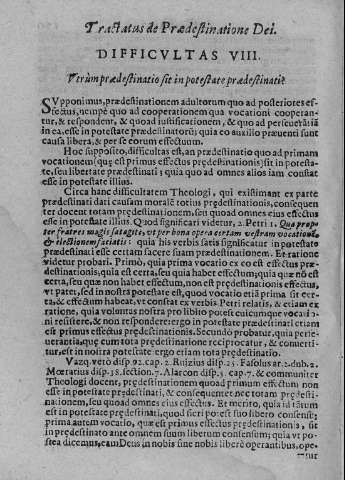 Tractatus de Prædestinatione Dei.
DIFFICVLTAS VIII.
Vtrùm prædestinatio sit in potestate prædestinati?
SVpponimus, prædestinationem adultorum quo ad posteriores effectus, nempè quo ad cooperationem qua vocationi cooperantur,
& respondent, & quoad iustificationem, & quo ad perseuerãtiã
in ea, esse in potestate prædestinatorũ; quia eo auxilio præuenti sunt
causa libera, & per se eorum effectuum.
Hoc supposito, difficultas est, an prædestinatio quo ad primam
vocationem (quę est primus effectus prędestinationis) sit in potestate, seu libertate prædestinati; quia quo ad omnes alios iam constat
esse in potestate illius.
Circa hanc difficultatem Theologi, qui existimant ex parte
prædestinati dari causam moralẽ totius prędestinationis, consequenter docent totam prædestinationem, seu quoad omnes eius effectus
esse in potestate illius. Quod significari videtur, 2. Petri 1. Quapropter fratres magis satagite, vt per bona opera certam vestram vocationẽ,
& electionem faciatis: quia his verbis satis significatur in potestate
prædestinati esse certam facere suam prædestinationem. Et ratione
videtur probari. Primò, quia prima vocatio ex eo est effectus prædestinationis, quia est certa, seu quia habet effectum; quia quæ nõ est
certa, seu quæ non habet effectum, non est prędestinationis effectus,
vt patet, sed in nostra potestate est, quod vocatio etiã prima sit certa, & effectum habeat, vt constat ex verbis Petri relatis, & etiam ex
ratione, quia voluntas nostra pro libito potest cuicumque vocationi resistere, & non respondere: ergo in potestate prædestinati etiam
est primus effectus prędestinationis. Secundò probatur, quia perseuerantia, quę cum tota prædestinatione reciprocatur, & conuertitur, est in nostra potestate: ergo etiam tota prædestinatio.
Vazq. verò disp. 92. cap. 2. Ruizius disp. 25. Fasolus ar. 2. dub. 2.
Mœratius disp. 38. section. 7. Alarcon disp. 5. cap. 7. & communiter
Theologi docent, prędestinationem quoad primum effectum non
esse in potestate prędestinati, & consequenter nec totam prędestinationem, seu quoad omnes eius effectus. Et meritò, quia id tãtum
est in potestate prędestinati, quod fieri potest suo libero consensu;
prima autem vocatio, quæ est primus effectus prædestinationis, sit
in prędestinato ante omnem suum liberum consensum; quia vt postea dicemus, eam Deus in nobis sine nobis liberè operantibus, ope-